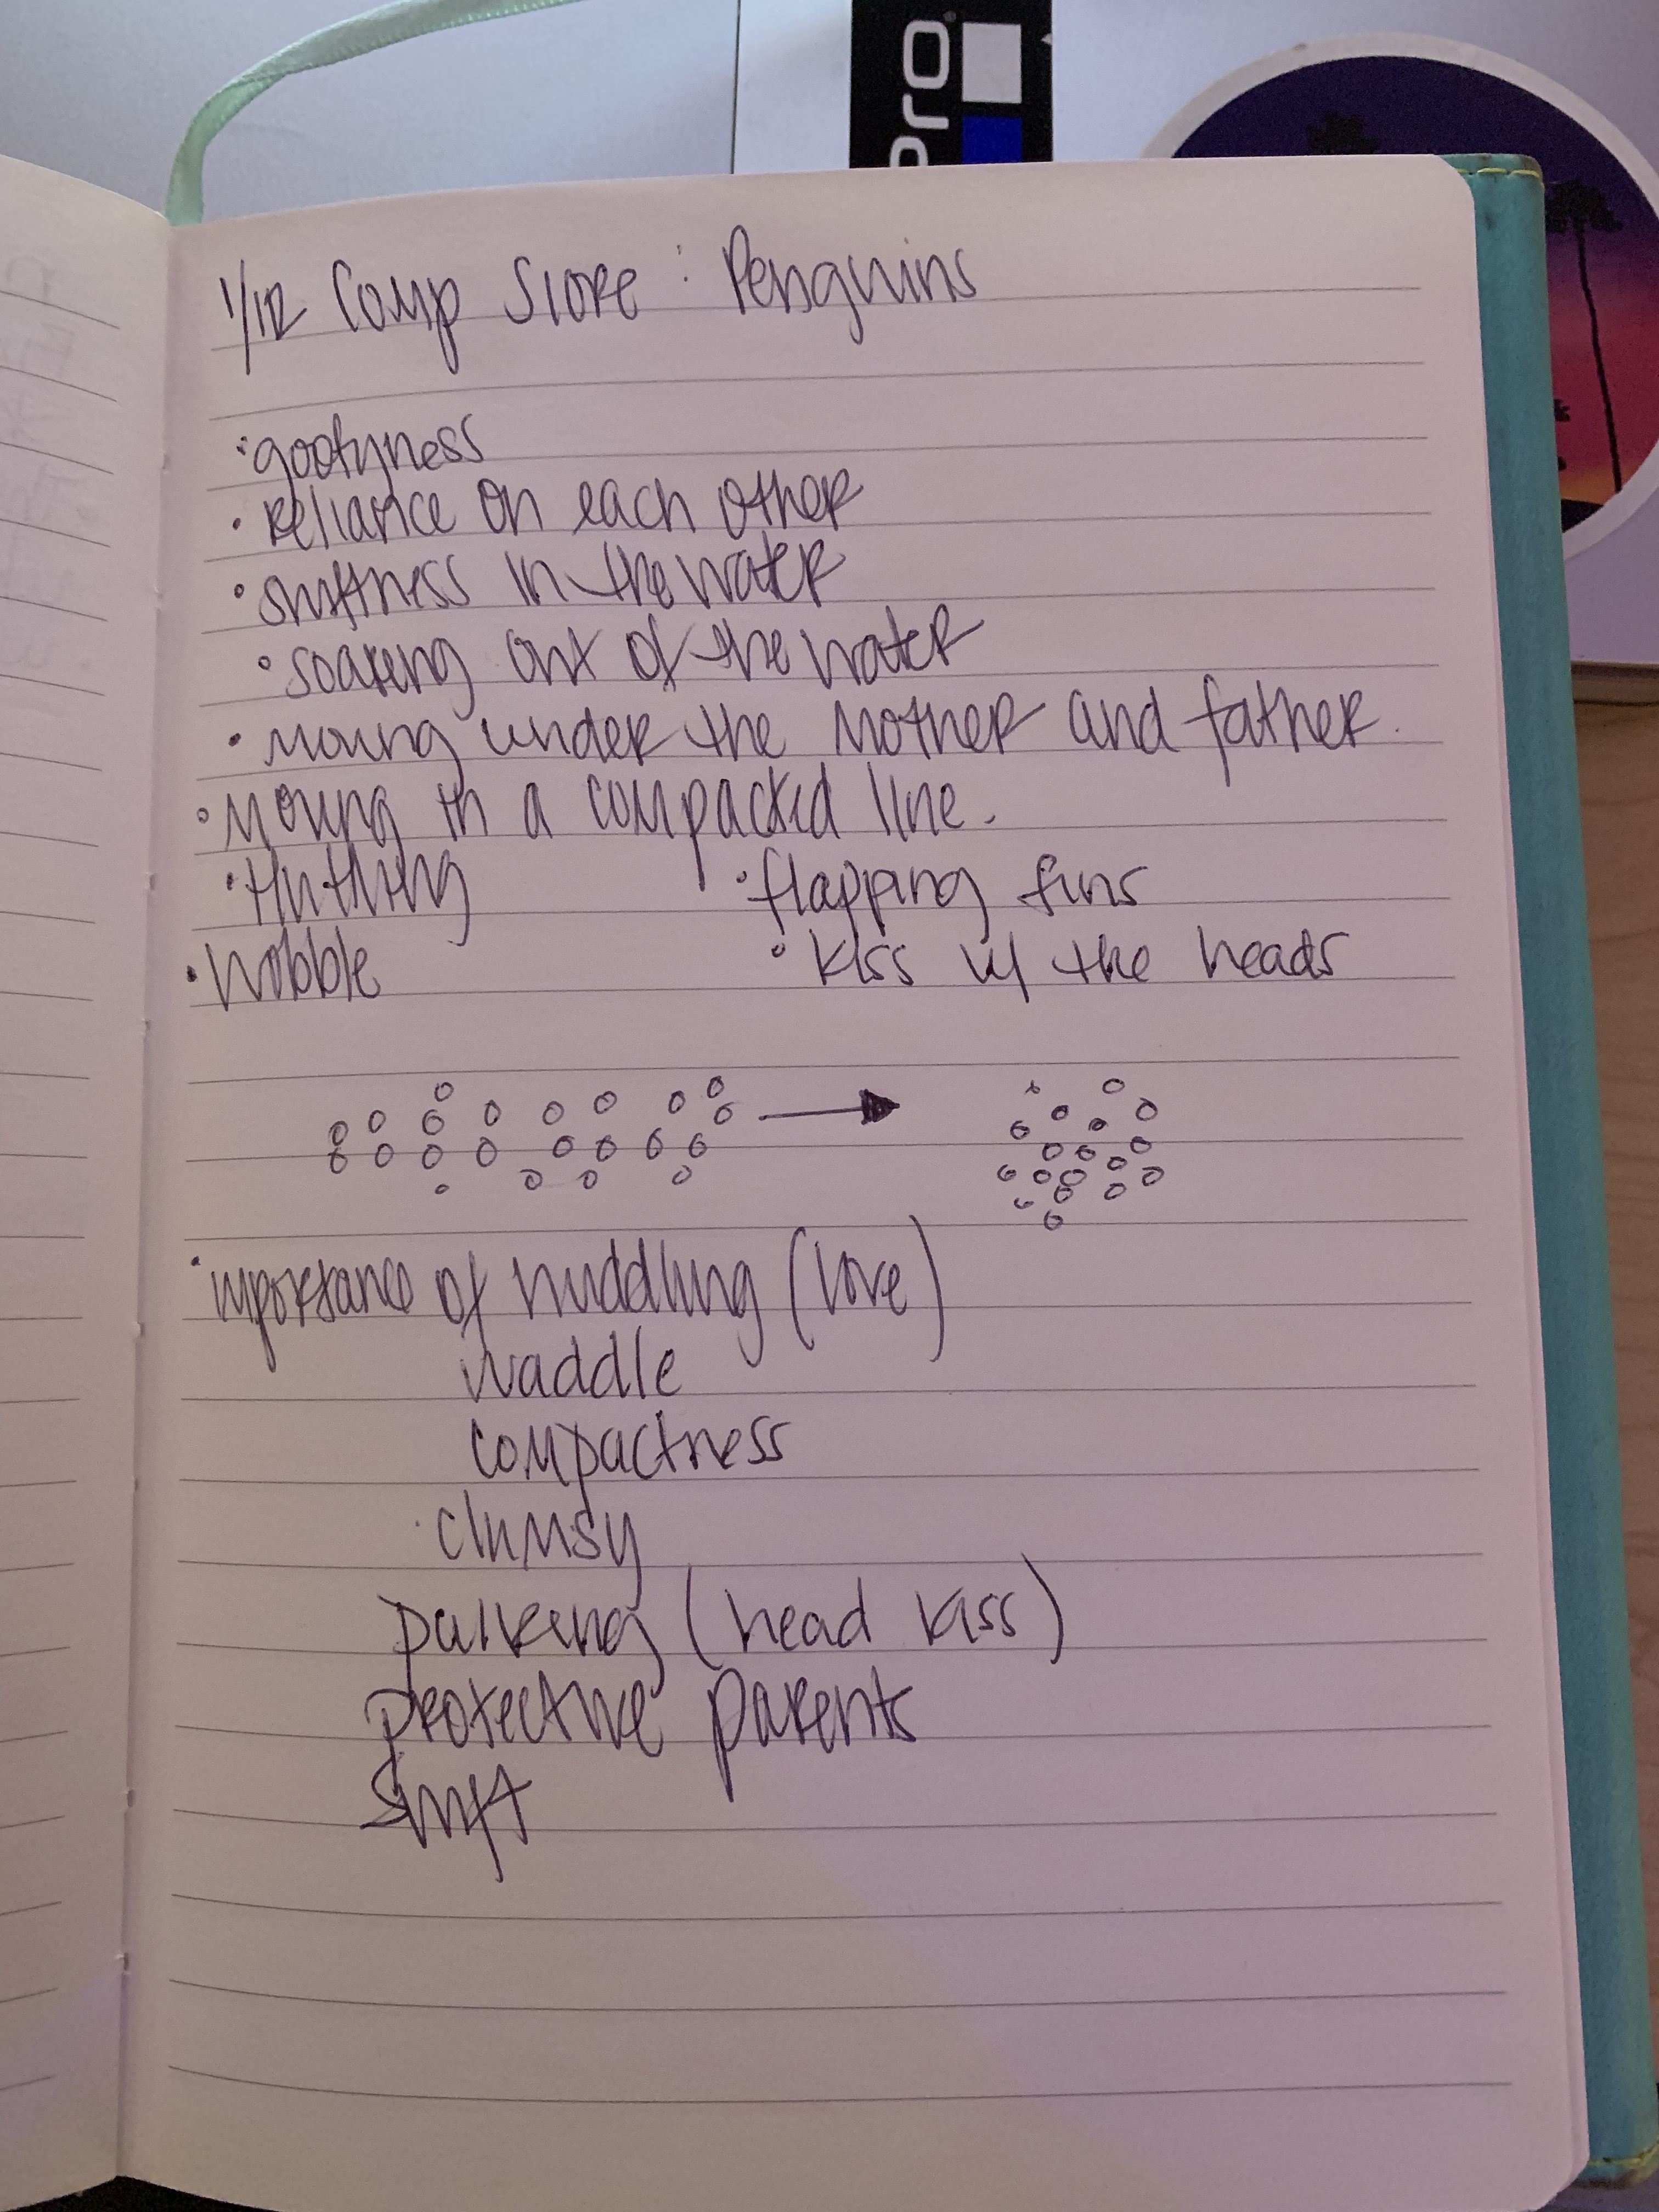 Pro
1/12 Comp Score : Penguins
· goofyness
· Reliance on each other
· swiftness in the water
· soaring out of the water
· moving under the Mother and father.
· Moving in a compacted line.
· flapping fins
· wobble
· kiss w/ the heads
· importance of huddling (love)
waddle
compactness
· clumsy
(head kiss)
protective parents
swift